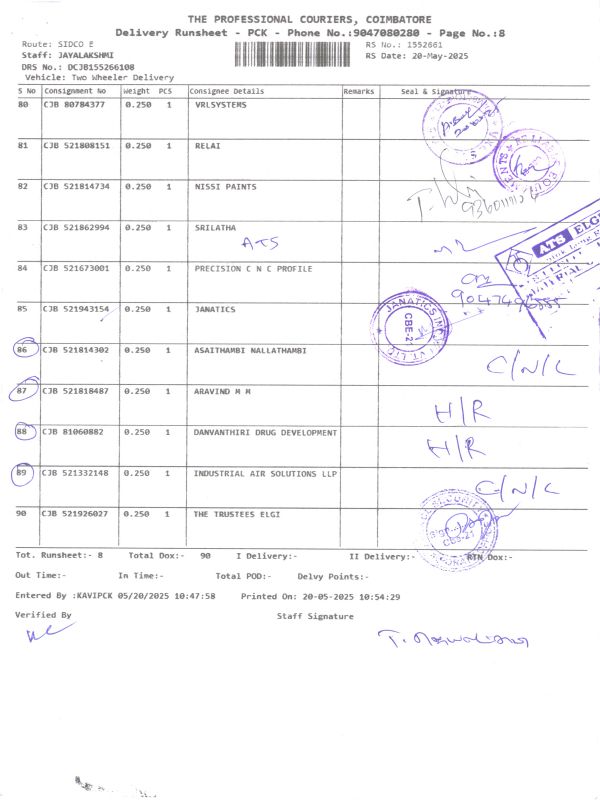 THE PROFESSIONAL COURIERS, COIMBATORE
Delivery Runsheet - PCK - Phone No.:9047080280 - Page No.:8
Route: SIDCO E RS No.: 1552661
Staff: JAYALAKSHMI RS Date: 20-May-2025
DRS No.: DCJB155266108
Vehicle: Two Wheeler Delivery
S No Consignment No Weight PCS Consignee Details Remarks Seal & Signature
80 CJB 80784377 0.250 1 VRLSYSTEMS
81 CJB 521808151 0.250 1 RELAI
82 CJB 521814734 0.250 1 NISSI PAINTS
83 CJB 521862994 0.250 1 SRILATHA
ATS
ATS ELGI
84 CJB 521673001 0.250 1 PRECISION C N C PROFILE
85 CJB 521943154 0.250 1 JANATICS
JANATICS
CBE-21
86 CJB 521814302 0.250 1 ASAITHAMBI NALLATHAMBI C/N/L
87 CJB 521818487 0.250 1 ARAVIND M M H/R
88 CJB 81060882 0.250 1 DANVANTHIRI DRUG DEVELOPMENT H/R
89 CJB 521332148 0.250 1 INDUSTRIAL AIR SOLUTIONS LLP C/N/L
90 CJB 521926027 0.250 1 THE TRUSTEES ELGI
SECURITY
CBE-21
Tot. Runsheet:- 8 Total Dox:- 90 I Delivery:- II Delivery:- RTN Dox:-
Out Time:- In Time:- Total POD:- Delvy Points:-
Entered By :KAVIPCK 05/20/2025 10:47:58 Printed On: 20-05-2025 10:54:29
Verified By Staff Signature